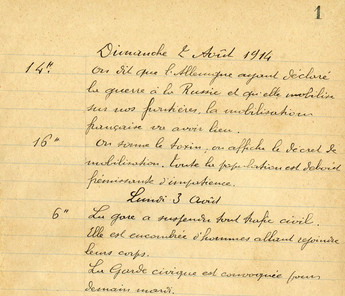 1
Dimanche 2 Août 1914
14h. On dit que l'Allemagne ayant déclaré
la guerre à la Russie et qu'elle mobilise
sur nos frontières, la mobilisation
française va avoir lieu.
16h On sonne le tosin, on affiche le décret de
mobilisation, toute la population est dehors
frémissante d'impatience.
Lundi 3 Août
6h La gare a suspendu tout trafic civil.
Elle est encombrée d'hommes allant rejoindre
leurs corps.
La Garde civique est convoquée pour
demain mardi.